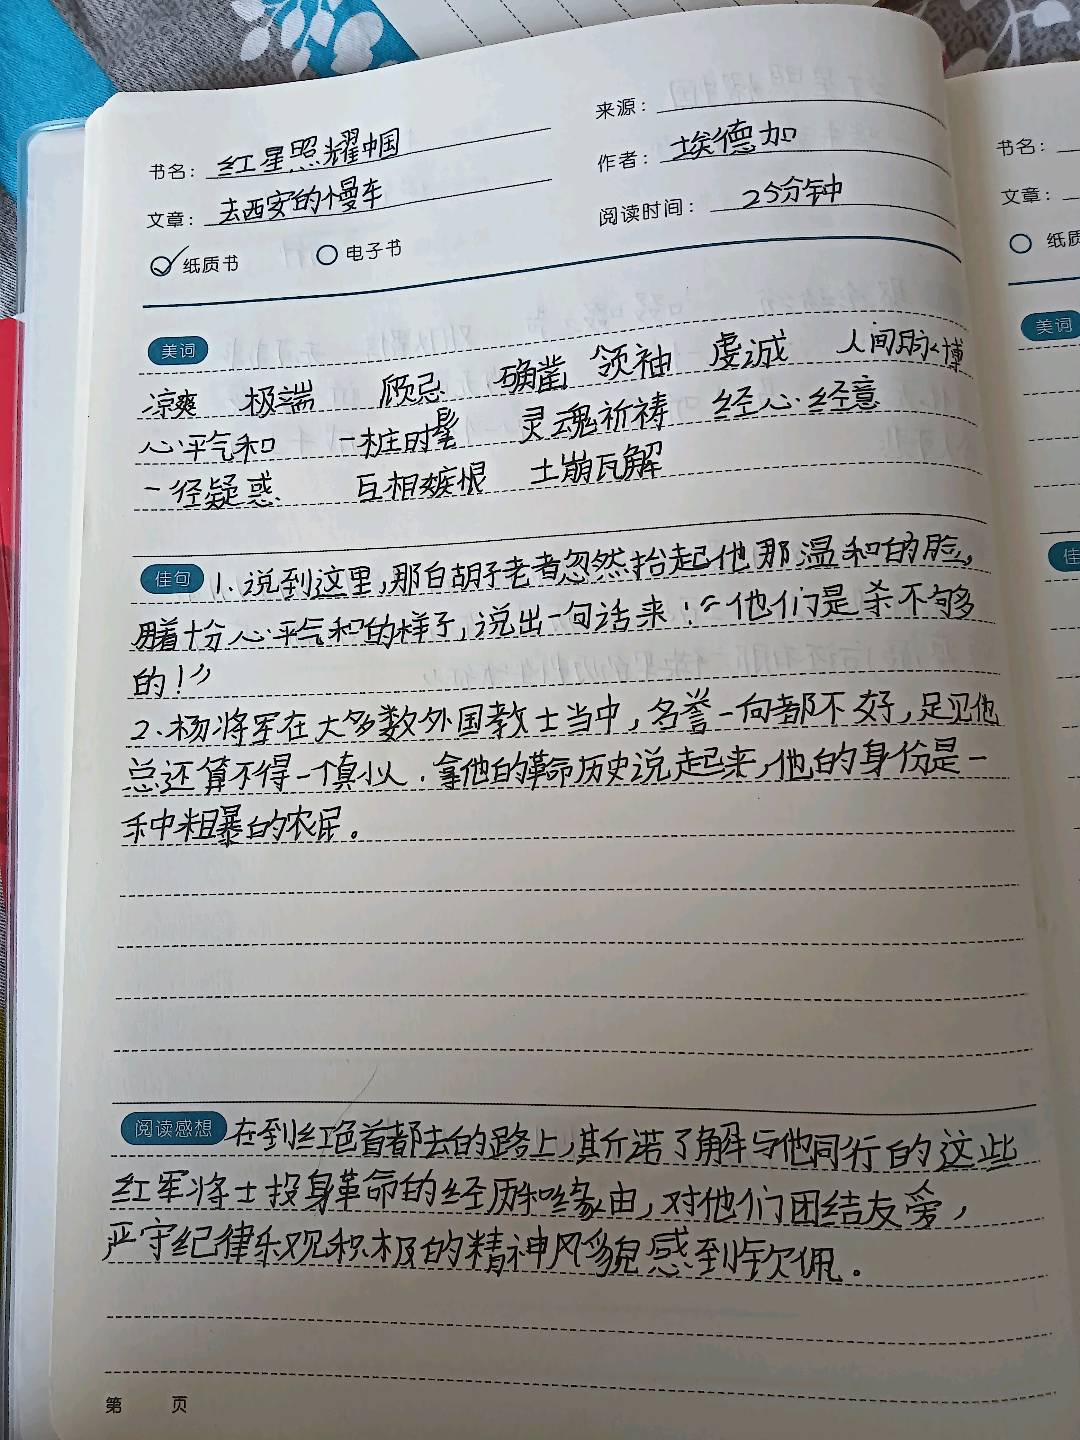 书名：红星照耀中国
来源：
文章：去西安的慢车
作者：埃德加
纸质书
电子书
阅读时间：25分钟
美词
凉爽 极端 顾忌 确凿 领袖 虔诚
心平气和 一桩时髦 灵魂祈祷 经心经意
一径疑惑 互相嫉恨 土崩瓦解
佳句 1、说到这里,那白胡子老者忽然抬起他那温和的脸,
用着十分心平气和的样子,说出一句话来:“他们是杀不够
的!”
2、杨将军在大多数外国教士当中,名誉一向都不好,足见他
总还算不得一个真小人.拿他的革命历史说起来,他的身份是一
种粗暴的农民。
阅读感想 在到红色首都去的路上,其斤诺了解与他同行的这些
红军将士投身革命的经历和缘由,对他们团结友爱,
严守纪律乐观积极的精神风貌感到钦佩.
第 页
书名：
文章：
纸质
美词
佳